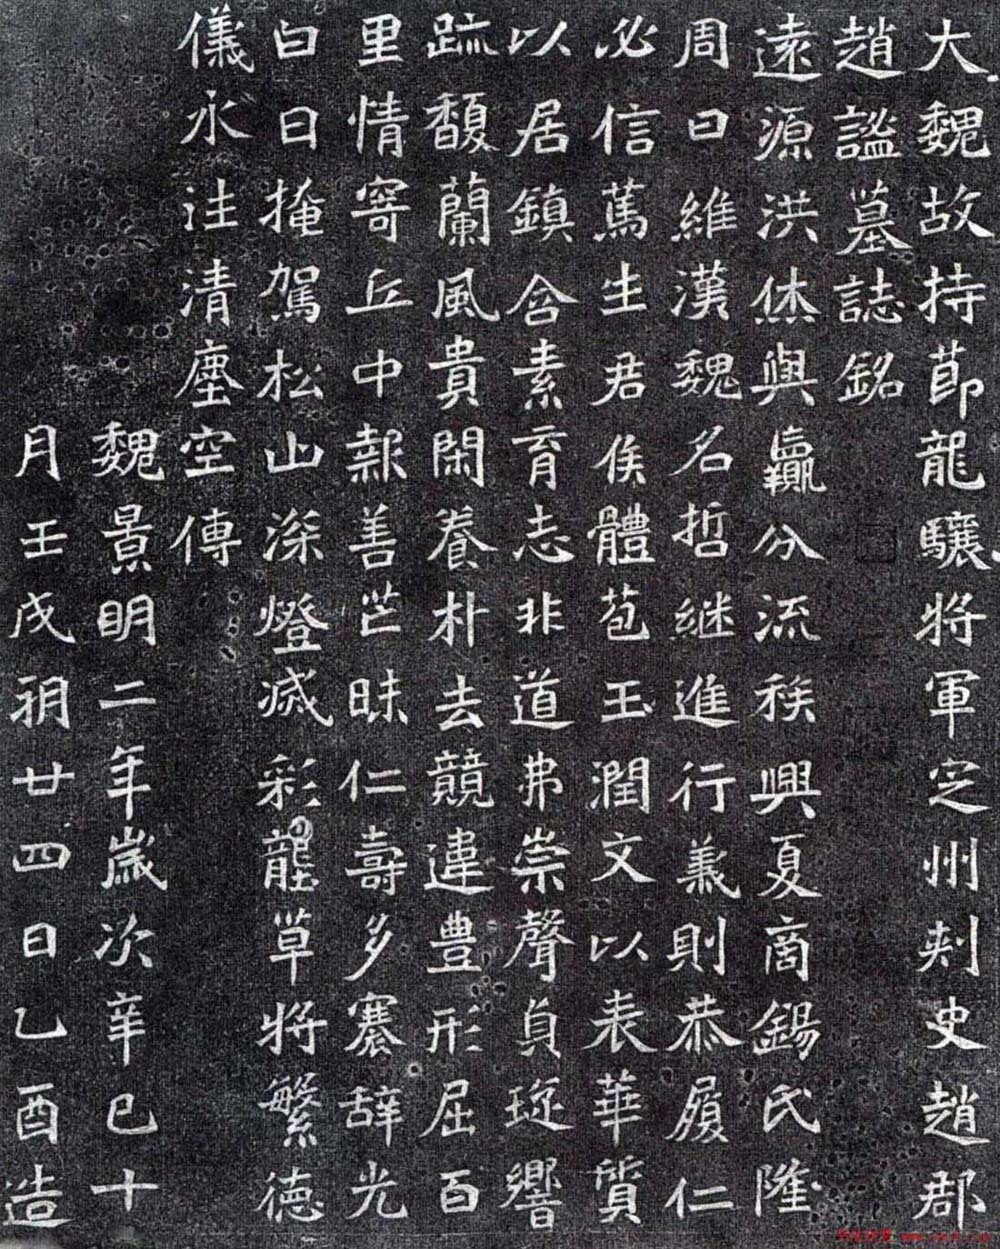 大魏故持節龍驤將軍定州刾史趙郡
趙謐墓誌銘
遠源洪休與嬴分流族興夏商錫氏隆
周曰維漢魏名哲継進行義則恭履仁
必信篤生君侯體苞玉潤文以表華質
以居鎮含素育志非道弗崇聲貞琁響
跡馥蘭風貴閑養朴去競違豊形屈百
里情寄丘中報善芒昧仁壽多褰辞光
白日掩駕松山深燈滅彩壟草将繁德
儀永注清塵空傳
魏景明二年歳次辛巳十
月壬戌朔廿四日乙酉造